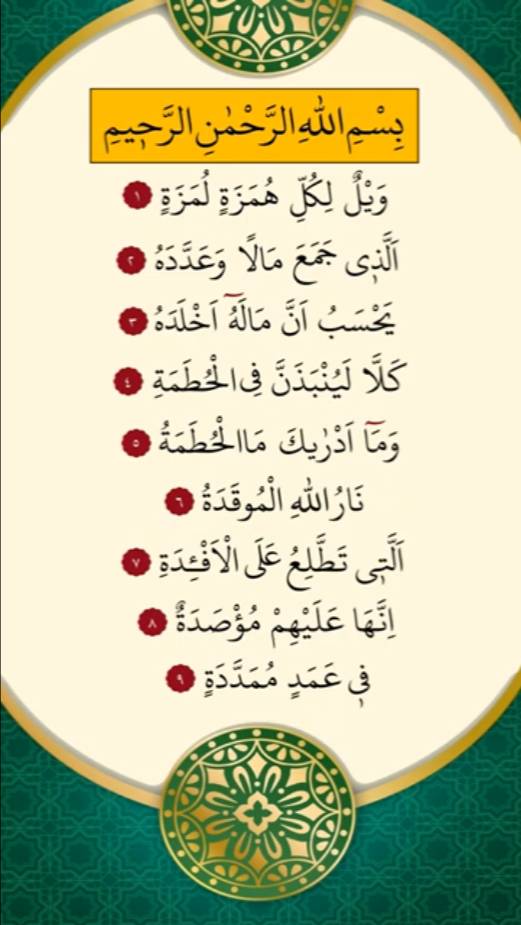 بِسْمِ اللهِ الرَّحْمٰنِ الرَّحٖيمِ
وَيْلٌ لِكُلِّ هُمَزَةٍ لُمَزَةٍ ١
اَلَّذٖى جَمَعَ مَالًا وَعَدَّدَهُ ٢
يَحْسَبُ اَنَّ مَالَهُٓ اَخْلَدَهُ ٣
كَلَّا لَيُنْبَذَنَّ فِى الْحُطَمَةِ ٤
وَمَٓا اَدْرٰيكَ مَا الْحُطَمَةُ ٥
نَارُ اللهِ الْمُوقَدَةُ ٦
اَلَّتٖى تَطَّلِعُ عَلَى الْاَفْـِٔدَةِ ٧
اِنَّهَا عَلَيْهِمْ مُؤْصَدَةٌ ٨
فٖى عَمَدٍ مُمَدَّدَةٍ ٩